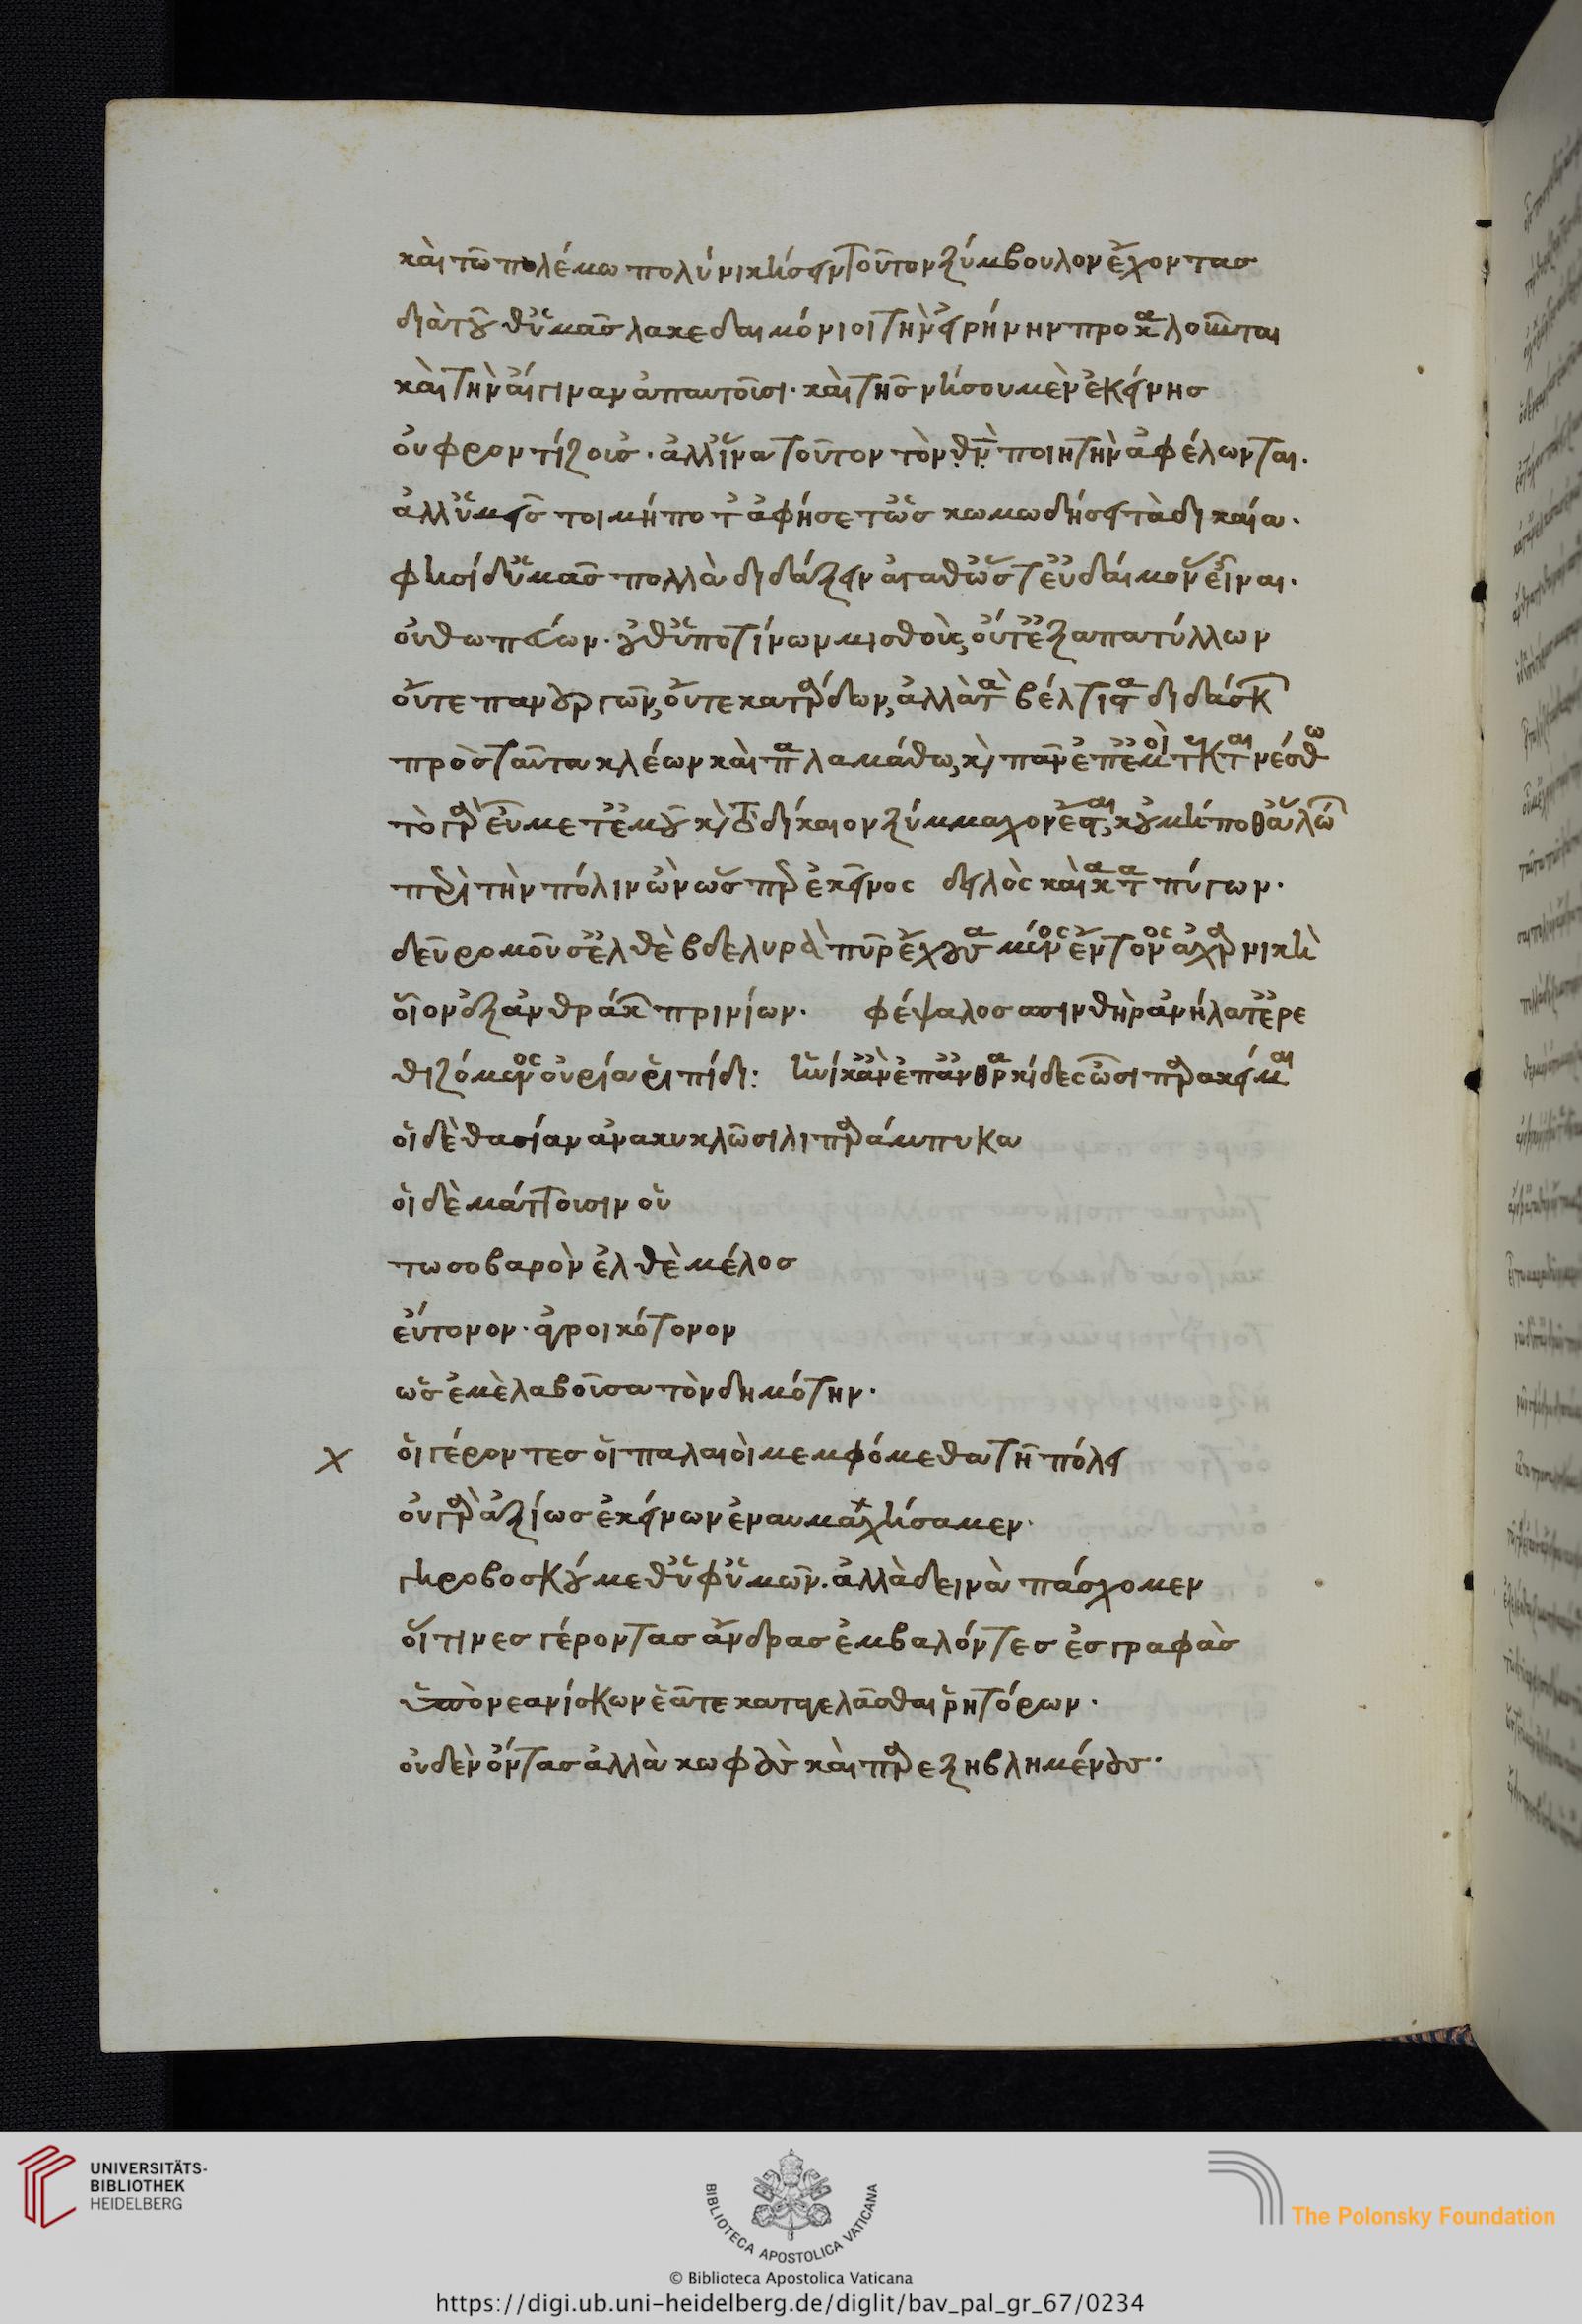 καὶ τῶ πολέμω πολὺ νικήσειν τοῦτον ξύμβουλον ἔχοντας
διὰ τοῦθ' ὑμᾶς λακεδαιμόνιοι τὴν εἰρήνην προκαλοῦνται
καὶ τὴν αἴγιναν ἀπαιτοῦσι· καὶ τῆς νήσου μὲν ἐκείνης
οὐ φροντίζουσ'· ἀλλ' ἵνα τοῦτον τὸν ποιητὴν ἀφέλωνται.
ἀλλ' ὑμεῖς τοι μήποτ' ἀφήσετ' ὡς κωμωδήσει τὰ δίκαια.
φησὶ δ' ὑμᾶς πολλὰ διδάξειν ἀγαθ' ὥστ' εὐδαίμον' εἶναι.
οὐ θωπεύων· οὐθ' ὑποτίνων μισθοὺς, οὔτ' ἐξαπατύλλων
οὔτε πανουργῶν, οὔτε κατάρδων, ἀλλὰ τὰ βέλτιστα διδάσκων
πρὸς ταῦτα κλέων καὶ παλαμάσθω, καὶ πᾶν ἐπ' ἐμοὶ τεκταινέσθω
τὸ γὰρ εὖ μετ' ἐμοῦ καὶ τὸ δίκαιον ξύμμαχον ἔσται, κοὐ μή ποθ' ἁλῶ
περὶ τὴν πόλιν ὢν ὥσπερ ἐκεῖνος δειλὸς καὶ καταπύγων.
δεῦρο μοῦσ' ἐλθὲ βδελυρὰ πυρὸς ἔχουσα μένος ἔντονος ἀχαρνικὴ
οἷον ἐξ ἀνθράκων πρινίων. φέψαλος σπινθὴρ ἀνήλατ' ἐρε
θιζόμενος οὐρία ῥιπίδι: ἡνίκ' ἂν ἐπανθρακίδες ὦσι παρακείμεναι
οἱ δὲ θασίαν ἀνακυκλῶσι λιπαράμπυκα
οἱ δὲ μάττουσιν οὑ
τω σοβαρὸν ἐλθὲ μέλος
εὔτονον. ἀγροικότονον
ὡς ἐμὲ λαβοῦσα τὸν δημότην.
οἱ γέροντες οἱ παλαιοὶ μεμφόμεθα τῆ πόλει
οὐ γὰρ ἀξίως ἐκείνων ἐναυμαχήσαμεν.
γηροβοσκούμεθ' ὑφ' ὑμῶν. ἀλλὰ δεινὰ πάσχομεν
οἵτινες γέροντας ἄνδρας ἐμβαλόντες ἐς γραφὰς
ὑπὸ νεανίσκων ἐᾶτε καταγελᾶσθαι ῥητόρων.
οὐδὲν ὄντας ἀλλὰ κωφοὺς καὶ παρεξηβλημένους.
UNIVERSITÄTS-
BIBLIOTHEK
HEIDELBERG
BIBLIOTECA APOSTOLICA VATICANA
The Polonsky Foundation
© Biblioteca Apostolica Vaticana
https://digi.ub.uni-heidelberg.de/diglit/bav_pal_gr_67/0234